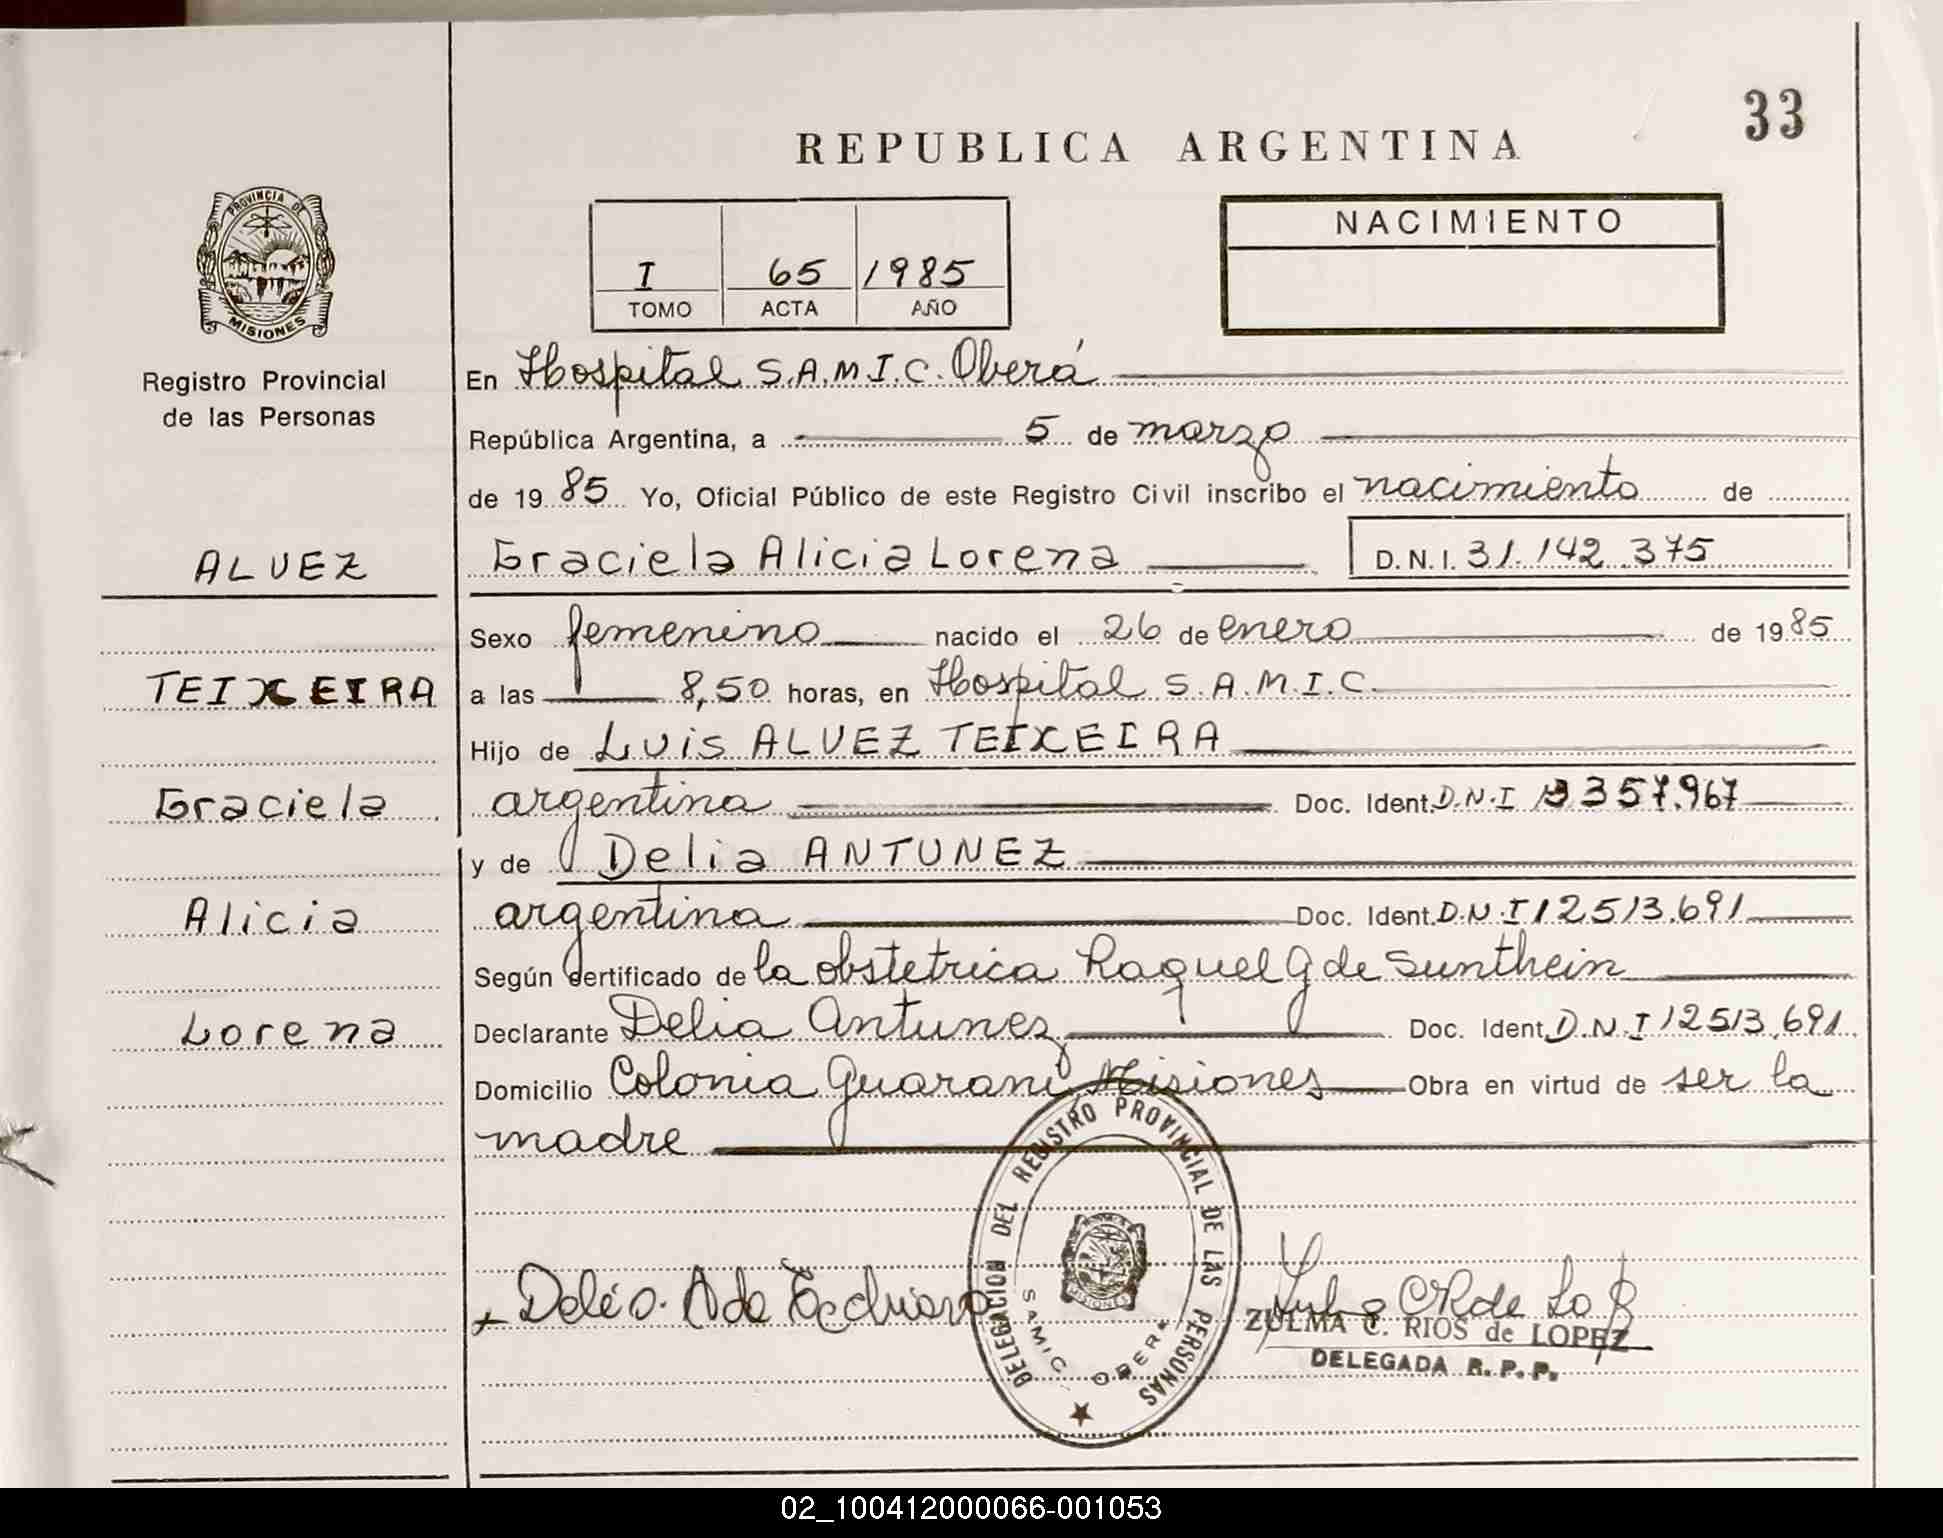 33
REPUBLICA ARGENTINA
PROVINCIA DE
MISIONES
I 65 1985
TOMO ACTA AÑO
NACIMIENTO
Registro Provincial
de las Personas
En Hospital S.A.M.I.C. Oberá
República Argentina, a 5 de marzo
de 1985 Yo, Oficial Público de este Registro Civil inscribo el nacimiento de
ALVEZ
Graciela Alicia Lorena D.N.I. 31.142.375
Sexo femenino nacido el 26 de enero de 1985
TEIXEIRA
a las 8,50 horas, en Hospital S.A.M.I.C.
Hijo de Luis ALVEZ TEIXEIRA
Graciela
argentina Doc. Ident. D.N.I 357.967
y de Delia ANTUNEZ
Alicia
argentina Doc. Ident. D.N.I 12513.691
Según certificado de la obstetrica Raquel G de Sunthein
Lorena
Declarante Delia Antunez Doc. Ident. D.N.I 12513.691
Domicilio Colonia Guarani Misiones Obra en virtud de ser la
madre
DELEGACION DEL REGISTRO PROVINCIAL DE LAS PERSONAS
MISIONES
SAMIC OBERA
ZULMA C. RIOS de LOPEZ
DELEGADA R.P.P.
02_100412000066-001053